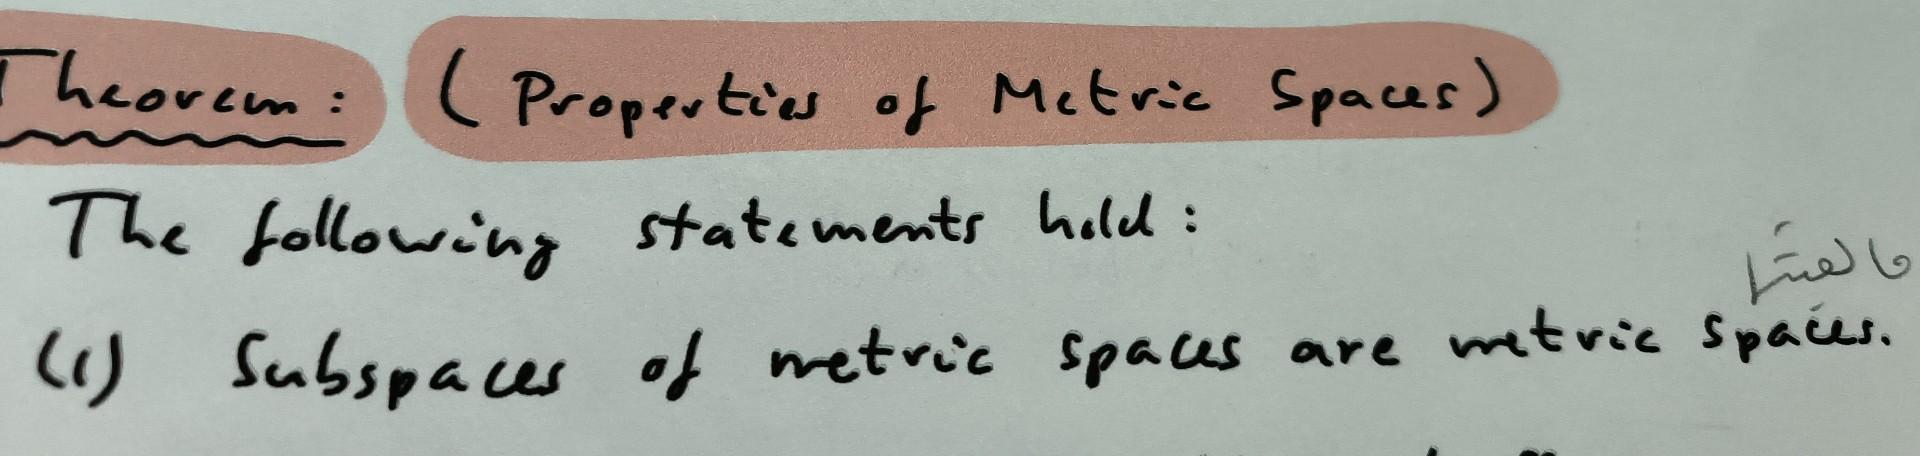 Theorem: (Properties of Metric Spaces)
The following statements hold:
(1) Subspaces of metric spaces are metric spaces.